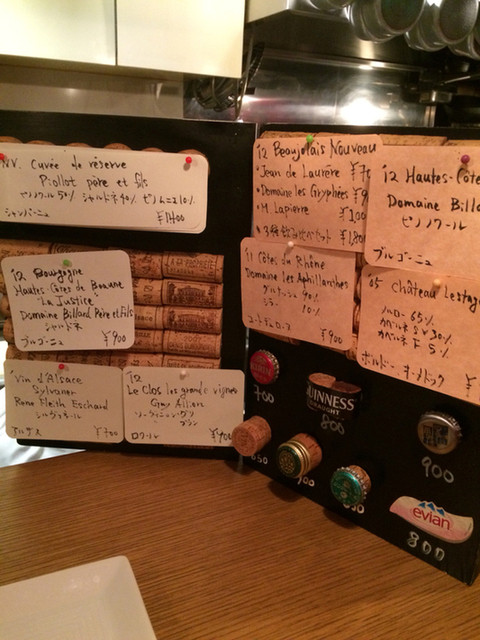 NV. Cuvée de réserve
Piollot père et fils
ピノノワール 50% シャルドネ 40% ピノムニエ 10%
シャンパーニュ ¥1400
'12 Bourgogne
Hautes-Côtes de Beaune
"La Justice"
Domaine Billard Père et Fils
シャルドネ
ブルゴーニュ ¥900
Vin d'Alsace
Sylvaner
Rene Fleith Eschard
シルヴァネール
アルザス ¥700
'12
Le Clos les grande vignes
ソーヴィニヨン・グリ
ロワール
'12 Beaujolais Nouveau
・Jean de Laurère
・Domaine les Gryphées
・M. Lapierre
・3種飲み比べセット
'11 Côtes du Rhône
Domaine les Aphillanthes
グルナッシュ 90%
シラー 10%
コートデュローヌ ¥900
'12 Hautes-Côte
Domaine Billa
ピノノワール
ブルゴーニュ
05 Château Lestag
メルロー 65%
カベルネ S.V 30%
カベルネ F 5%
ボルドー オーメドック ¥
700
GUINNESS
DRAUGHT
800
900
evian
800